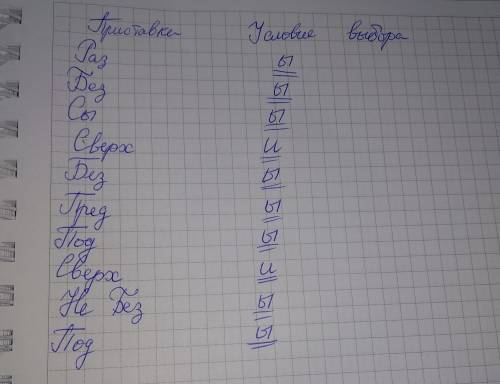 Приставки Условие выбора
Раз ы
Без ы
Сы ы
Сверх и
Без ы
Пред ы
Под ы
Сверх и
Не Без ы
Под ы